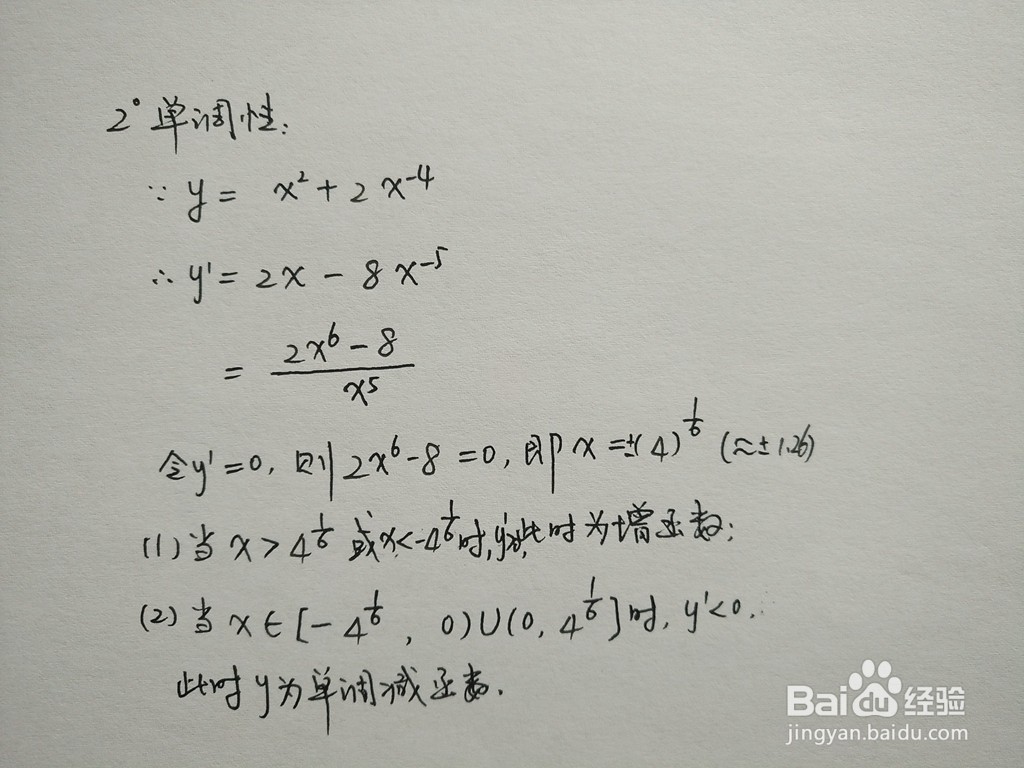 2° 单调性:
∵ y = x² + 2x⁻⁴
∴ y' = 2x - 8x⁻⁵
= (2x⁶ - 8)/x⁵
令y'=0, 则2x⁶-8=0, 即x=±(4)^(1/6) (≈±1.26)
(1) 当x>4^(1/6)或x<-4^(1/6)时, y'>0,此时为增函数;
(2) 当x∈[-4^(1/6), 0)∪(0, 4^(1/6)]时, y'<0.
此时y为单调减函数.
Baidu经验
jingyan.baidu.com